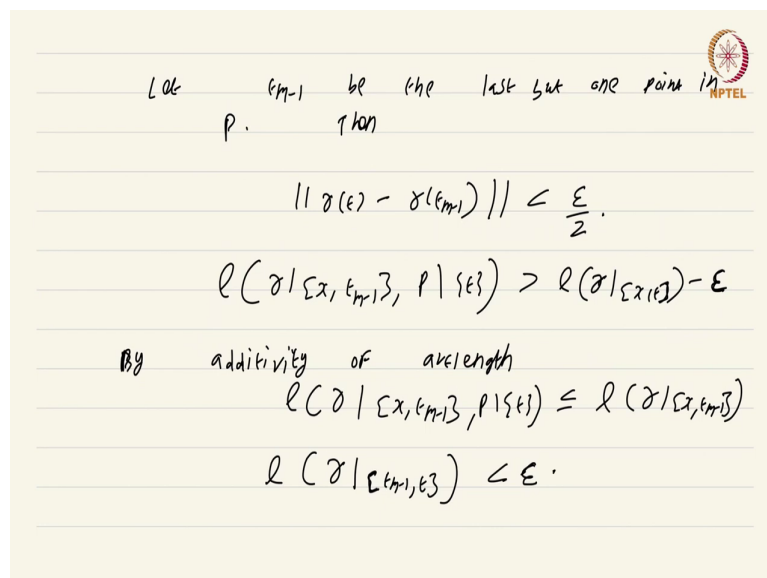 Let t_{m-1} be the last but one point in
NPTEL
P. Then
||γ(t) - γ(t_{m-1})|| < ε/2.
ℓ(γ|[x, t_{m-1}], P\{t}) > ℓ(γ|[x,t]) - ε
By additivity of arclength
ℓ(γ|[x, t_{m-1}], P\{t}) ≤ ℓ(γ|[x, t_{m-1}])
ℓ(γ|[t_{m-1}, t]) < ε.